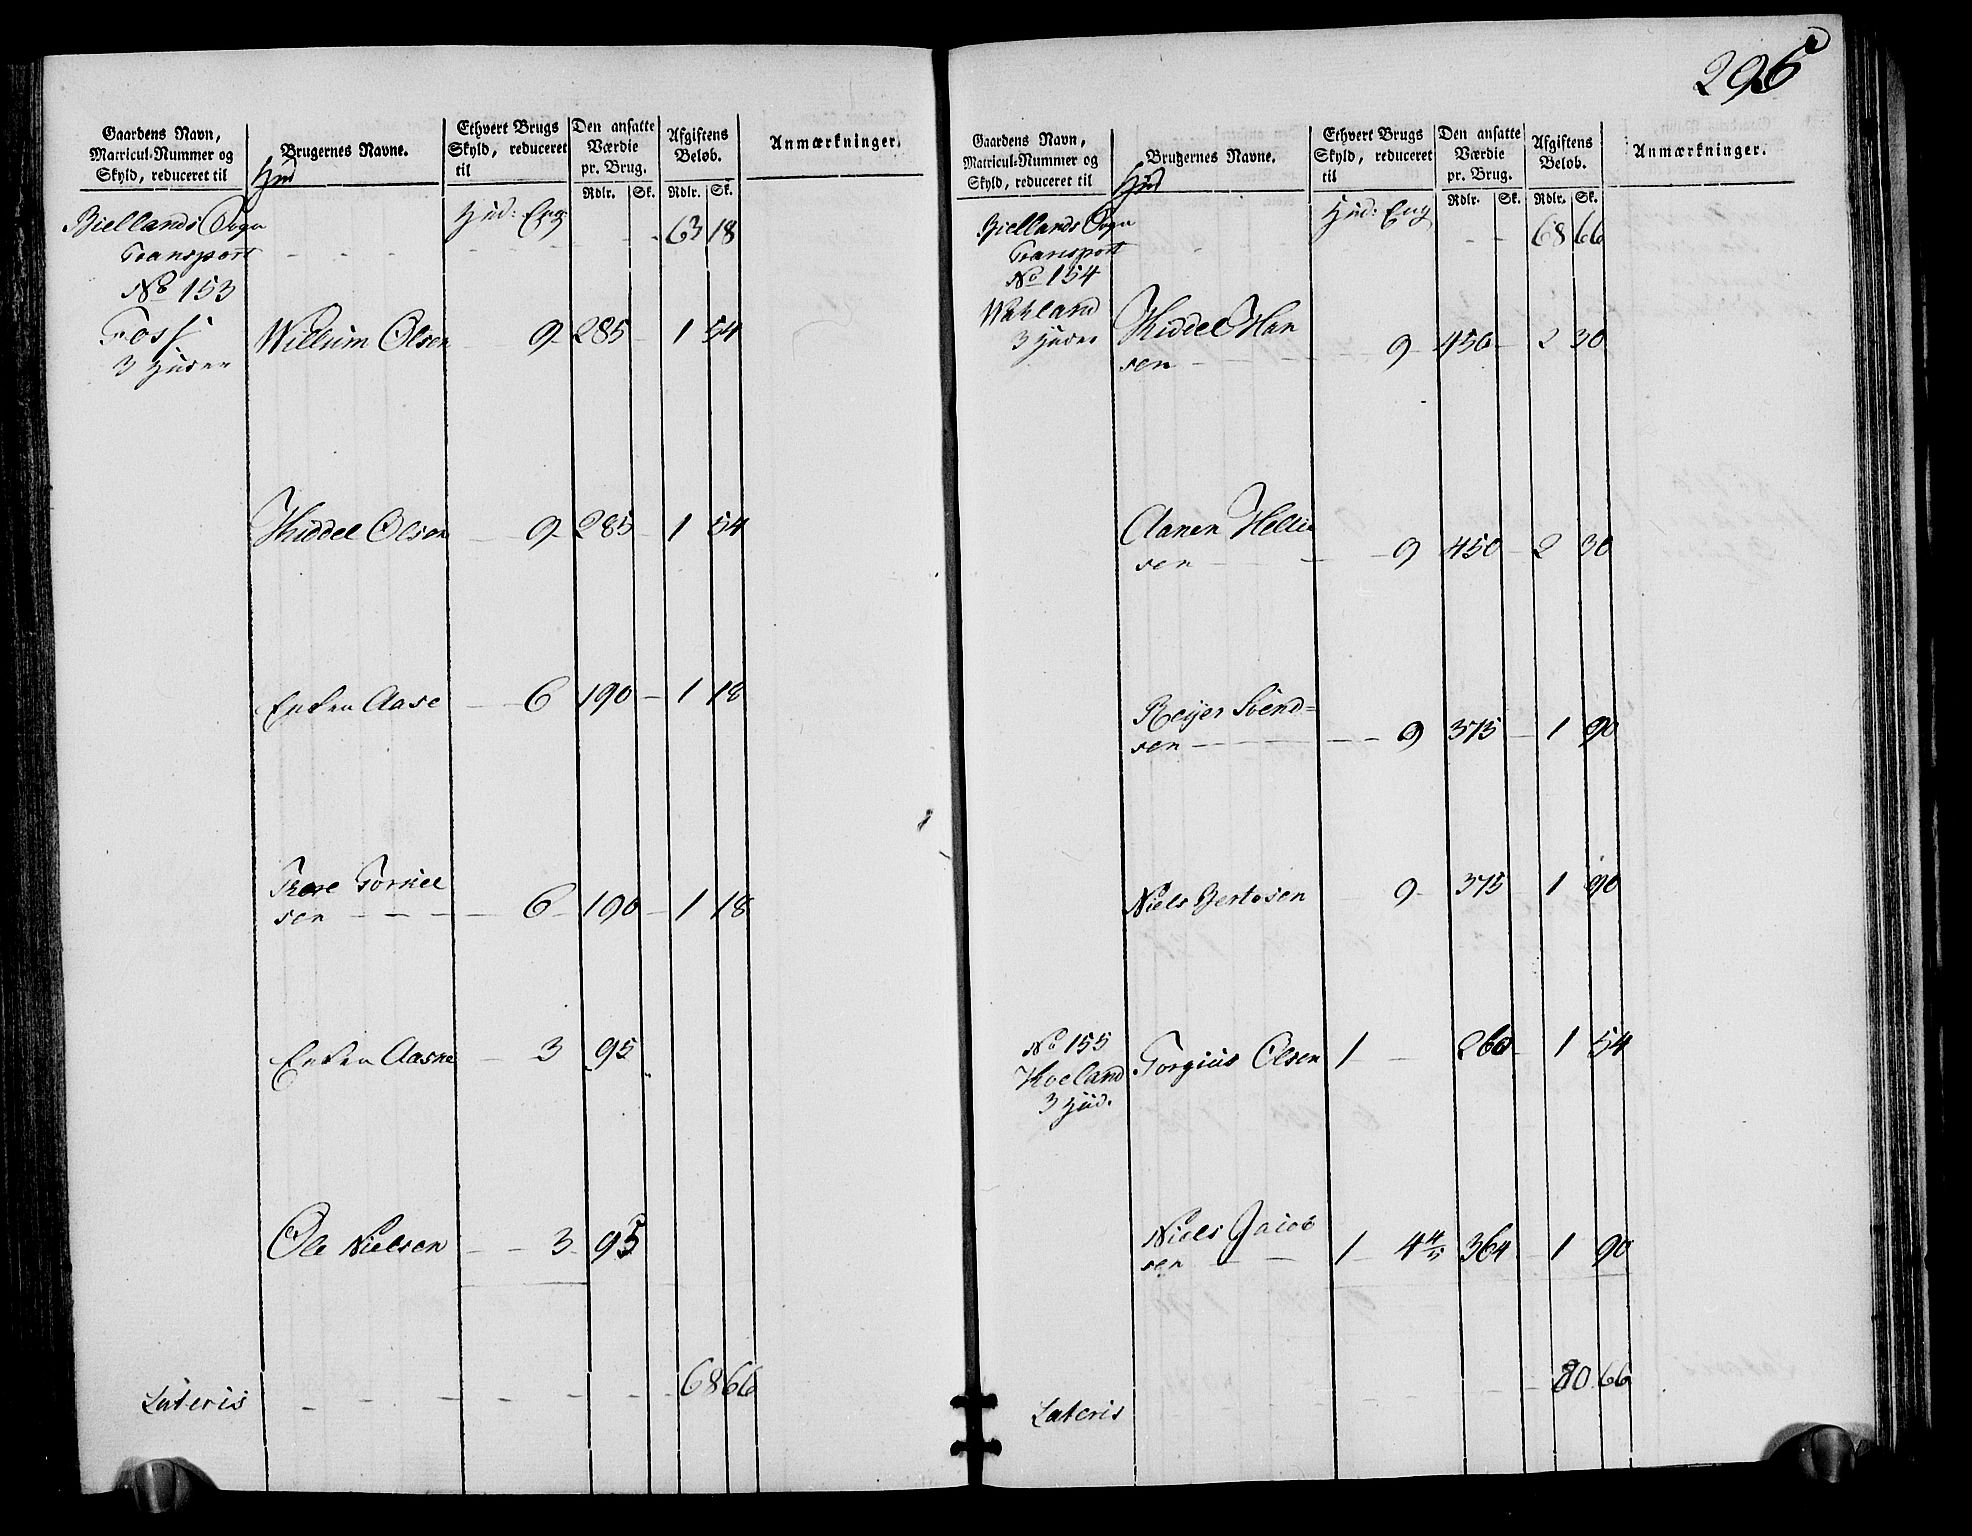 296
Gaardens Navn, Matricul-Nummer og Skyld, reduceret til
Brugernes Navne.
Ethvert Brugs Skyld, reduceret til
Den ansatte Værdie pr. Brug.
Afgiftens Beløb.
Anmærkninger.
Rdlr. Sk. Rdlr. Sk.
Hud: Eng:
Biellands Sogn
Transport - - - - 63 18
No 153
Foss Willum Olsen - 9 - 285 - 1 54
3 Huder
Kiddel Olsen - 9 - 285 - 1 54
Enken Aase - - 6 190 - 1 18
Tore Torkel
sen - - - - 6 - 190 - 1 18
Enken Aasne - 3 95
Ole Nielsen - - 3 - 95
Lateris - - - - - - 68 66
Gaardens Navn, Matricul-Nummer og Skyld, reduceret til
Brugernes Navne.
Ethvert Brugs Skyld, reduceret til
Den ansatte Værdie pr. Brug.
Afgiftens Beløb.
Anmærkninger.
Rdlr. Sk. Rdlr. Sk.
Hud: Eng
Biellands Sogn
Transport - - - 68 66
No 154
3 Huder Kiddel Han
sen - - - 9 - 450 - 2 30
Aanen Hellie
sen - - - 9 450 - 2 30
Reijer Svend=
sen - - - - 9 375 - 1 90
Niels Bertosen - 9 - 375 - 1 90
No 155
Torgius Olsen 1 - 260 - 1 54
3 Hud.
Niels Jacob
sen - - 1 - 4 4/5 364 - 1 90
Lateris - - - 80 66